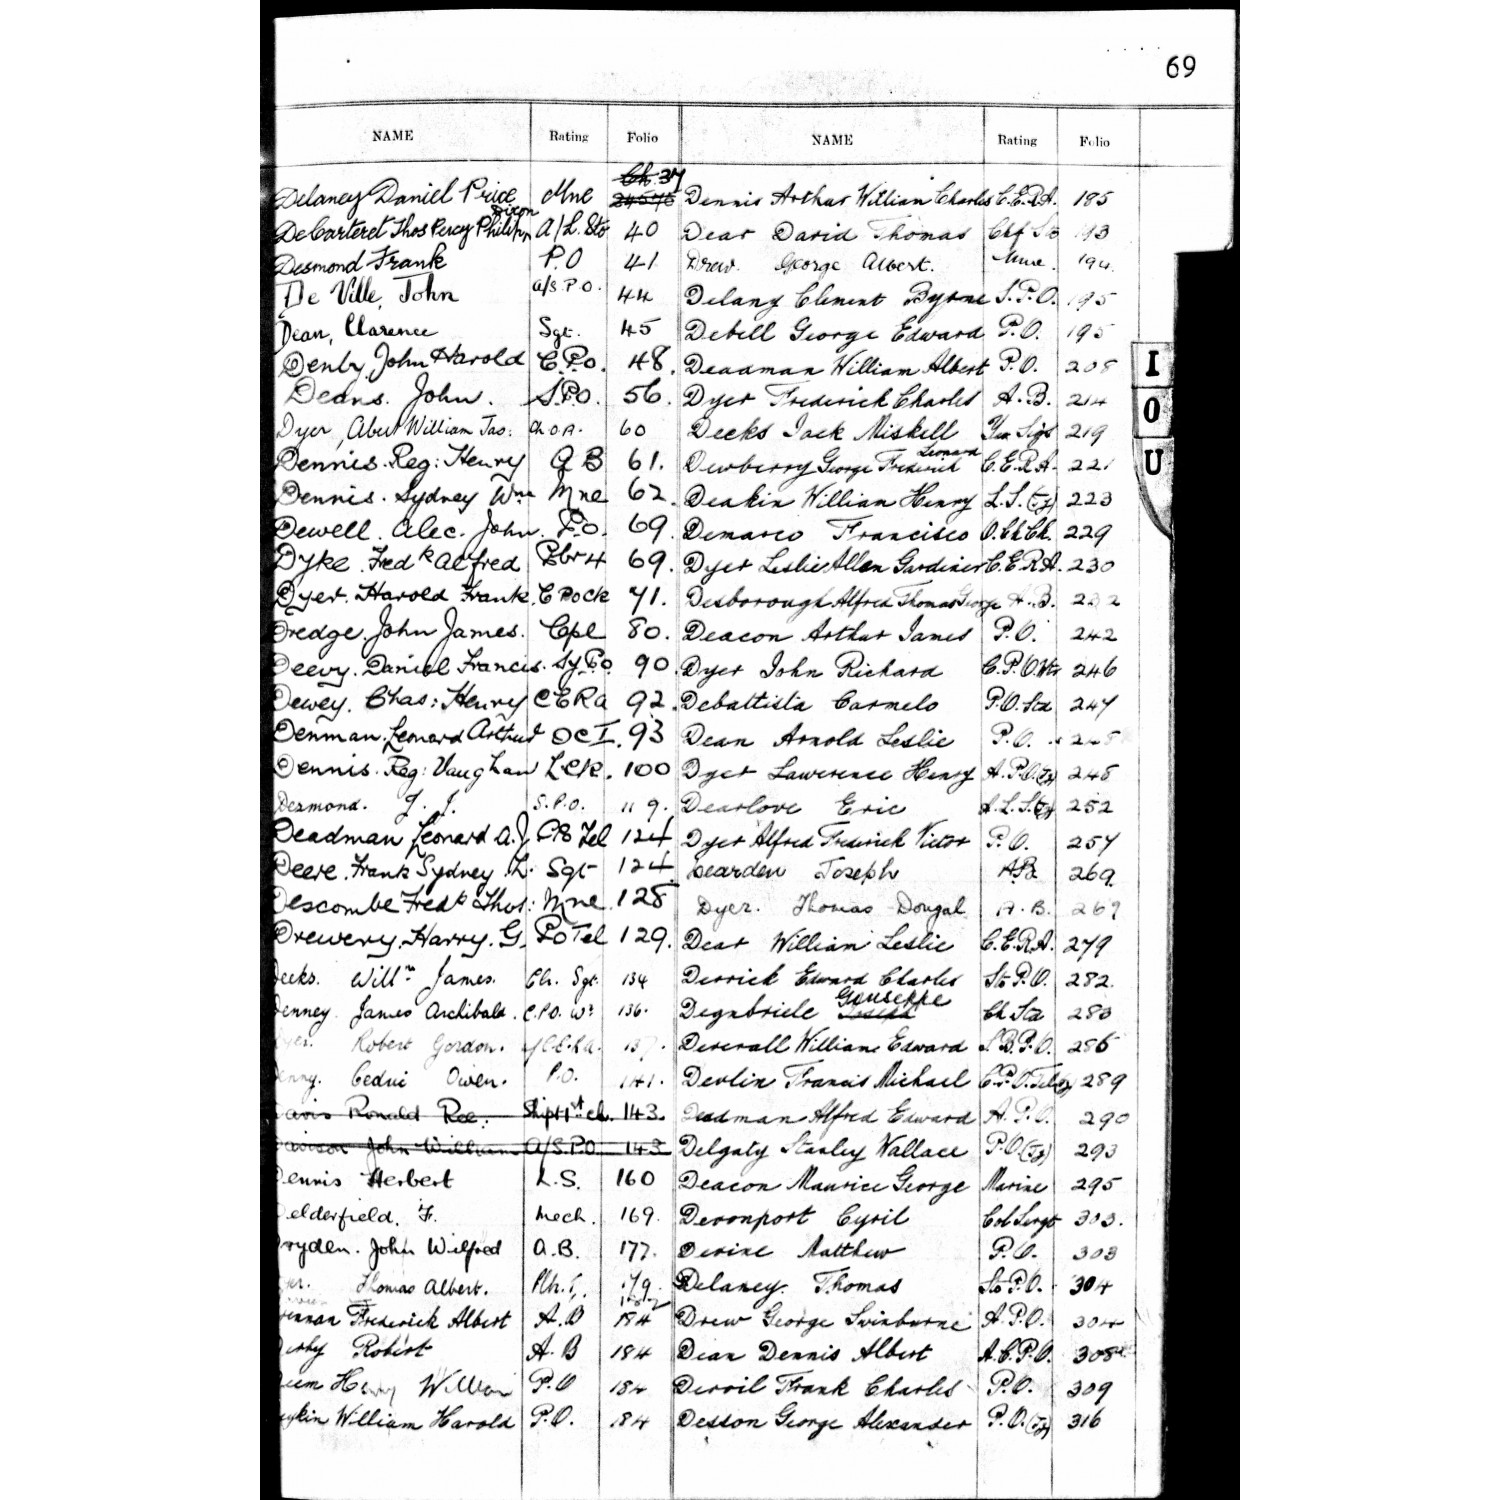 69
NAME Rating Folio NAME Rating Folio
Ch. 37
Delaney Daniel Price Mne 24576 Dennis Arthur William Charles C.E.R.A. 185
Dixon
DeCarteret Thos Percy Philip A/L. Sto 40 Dear David Thomas Chf Sto 193
Desmond Frank P.O 41 Drew. George Albert. Mne. 194
De Ville, John A/S.P.O. 44 Delany Clement Byrne S.P.O. 195
Dean, Clarence Sgt. 45 Debell George Edward P.O. 195
Denby, John Harold C.P.O. 48. Deadman William Albert P.O. 208
Deans. John. S.P.O. 56. Dyer Frederick Charles A.B. 214
Dyer, Albert William Jas: Ch.O.A. 60 Deeks Jack Miskell Yeo Sigs 219
Leonard
Dennis. Reg: Henry A B 61. Dewberry George Frederick C.E.R.A. 221
Dennis. Sydney Wm Mne 62. Deakin William Henry L.S. (Ty) 223
Dewell. Alec. John. P.O. 69. Demarco Francisco O.Ch.Ch. 229
Dyke. Fredk Alfred Pbr 4 69. Dyer Leslie Allen Gardiner C.E.R.A. 230
Dyer. Harold Frank. C PO Ck 71. Desborough Alfred Thomas George A.B. 232
Dredge. John James. Cpl 80. Deacon Arthur James P.O. 242
Deevy. Daniel Francis. Sy. P.O 90. Dyer John Richard C.P.O.Wtr 246
Dewey. Chas: Henry C E R A 92. Debattista Carmelo P.O.Std 247
Denman. Leonard Arthur O C I. 93 Dean Arnold Leslie P.O. 248
Dennis. Reg: Vaughan L Ck. 100 Dyer Lawerence Henry A.P.O.(Ty) 248
Desmond. J. J. S.P.O. 119. Dearlove Eric A.L.S.(Ty) 252
Deadman Leonard A.J. PO Tel 124 Dyer Alfred Frederick Victor P.O. 257
Deere. Frank Sydney L. Sgt 124. Dearden Joseph AB 269.
Descombe Fredk Thos: Mne. 128 Dyer. Thomas Dougal A.B. 269
Drewery. Harry. G. PO Tel 129. Dear William Leslie C.E.R.A. 279
Deeks. Willm James. Ch. Sgt. 134 Derrick Edward Charles Sto P.O. 282.
Giuseppe
Denney. James Archibald. C.P.O. Wr 136. Degabriele Joseph Ch Std 283
Dyer. Robert Gordon. A/C.E.R.A. 137. Deverall William Edward S.B.P.O. 286
Denny. Cedric Owen. P.O. 141. Devlin Francis Michael C.P.O.Tel(Ty) 289
Davis Ronald Ree. Shipt 1st cl. 143. Deadman Alfred Edward A.P.O. 290
Davison John William A/S.P.O. 143 Delgaty Stanley Wallace P.O.(Ty) 293
Dennis Herbert L.S. 160 Deacon Maurice George Marine 295
Delderfield. F. Mech. 169. Devonport Cyril Col Sergt 303.
Dryden. John Wilfred A.B. 177. Devine Matthew P.O. 303
Thomas Albert. 179. Delaney. Thomas Sto P.O. 304
Frederick Albert A.B 184 Drew George Swinburne A.P.O. 304
Derby Robert A.B 184 Dean Dennis Albert A.C.P.O. 308
Henry William P.O 184 Dervil Frank Charles P.O. 309
William Harold P.O. 184 Desson George Alexander P.O.(Ty) 316
I
O
U